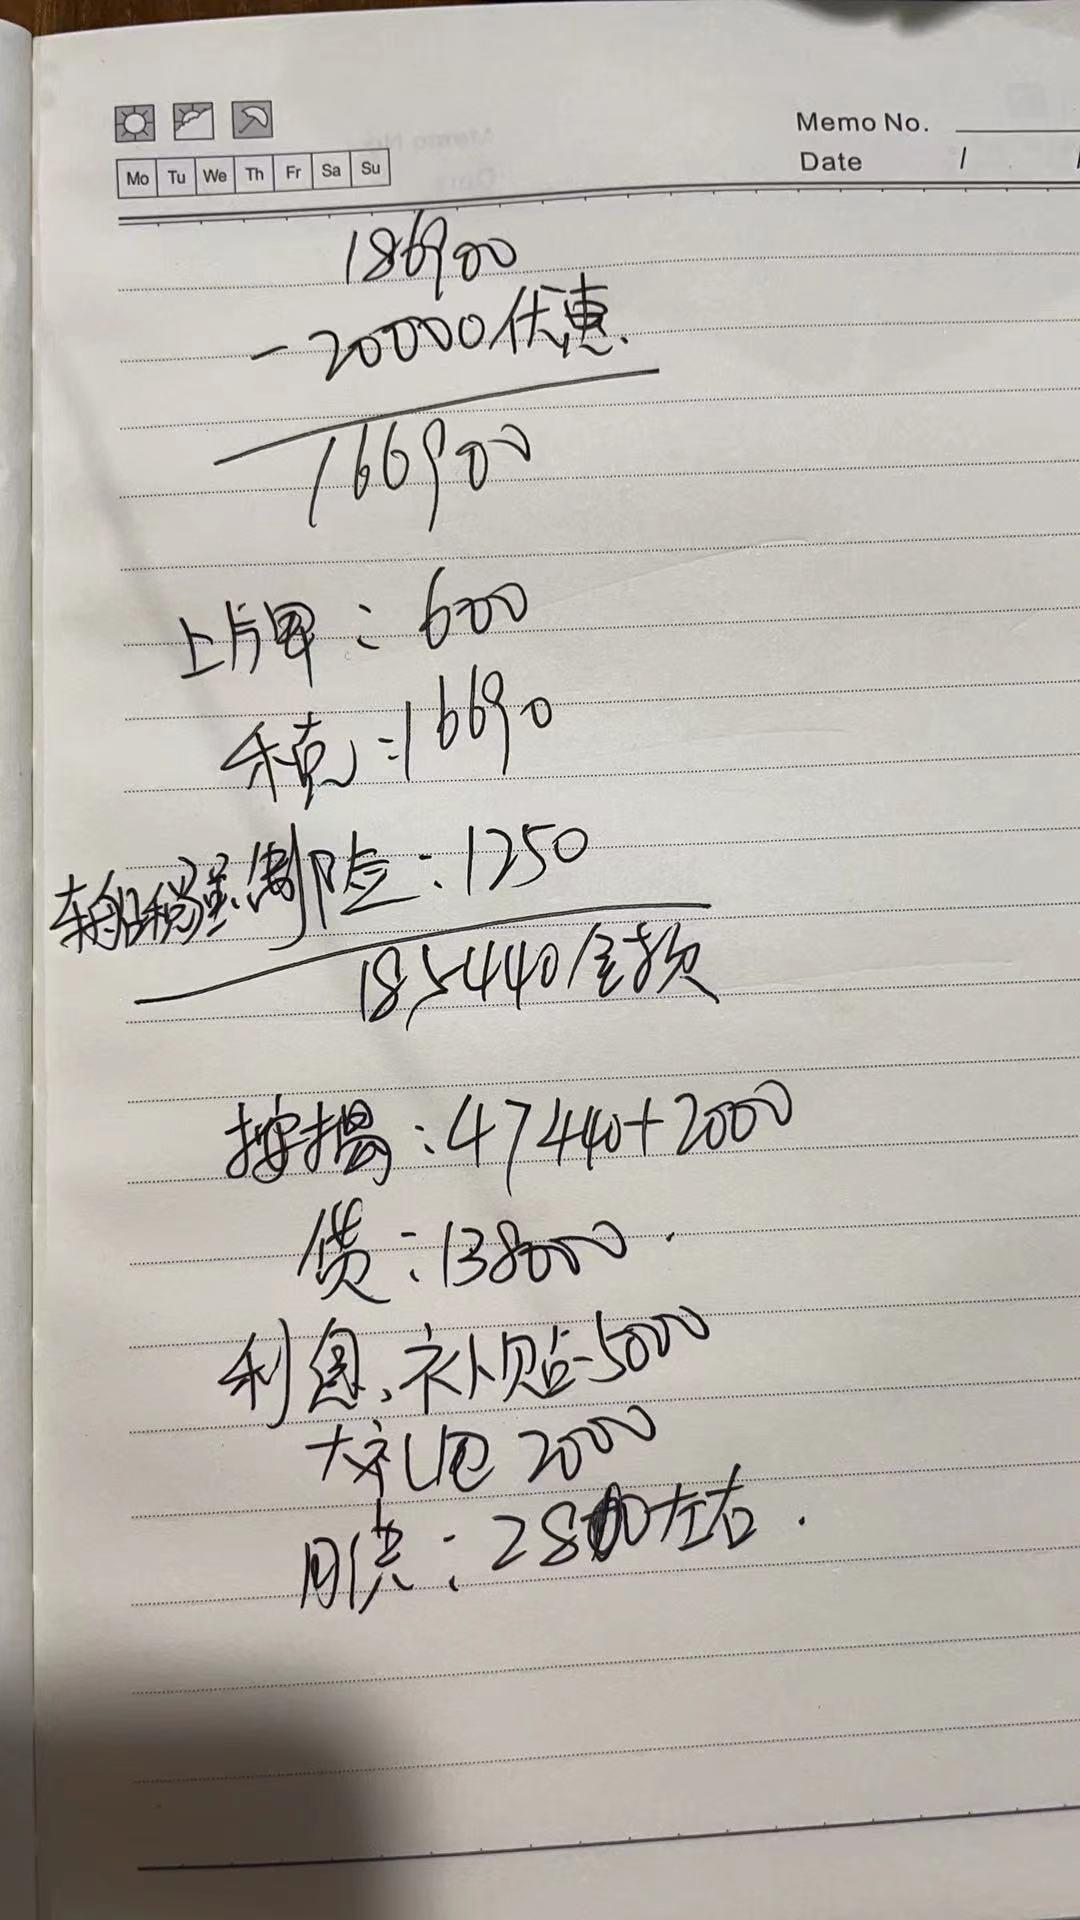 Memo No.
Mo Tu We Th Fr Sa Su
Date / /
186900
-20000优惠.
166900
上牌: 600
:16690
车船税强制险:1250
185440/全款
按揭:47440+2000
贷:138000.
利息、补贴-5000
大礼包 2000
月供:2800左右.